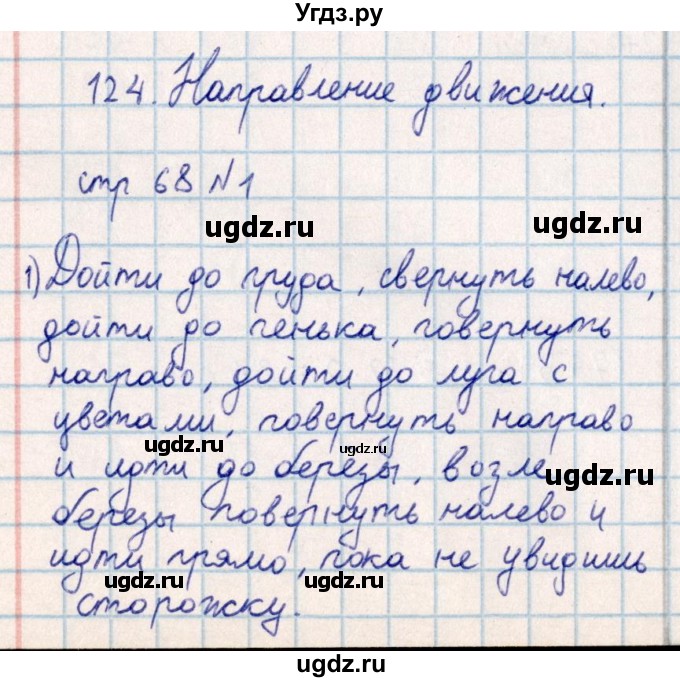 Угдз.ру
124. Направление движения.
стр 68 №1
ugdz.ru
1) Дойти до пруда, свернуть налево,
ugdz.ru
дойти до пенька, повернуть
направо, дойти до луга с
цветами, повернуть направо
ugdz.ru ugdz.ru
и идти до берёзы, возле
ugdz.ru
берёзы повернуть налево и
идти прямо, пока не увидишь
ugdz.ru ugdz.ru
сторожку.
ugdz.ru